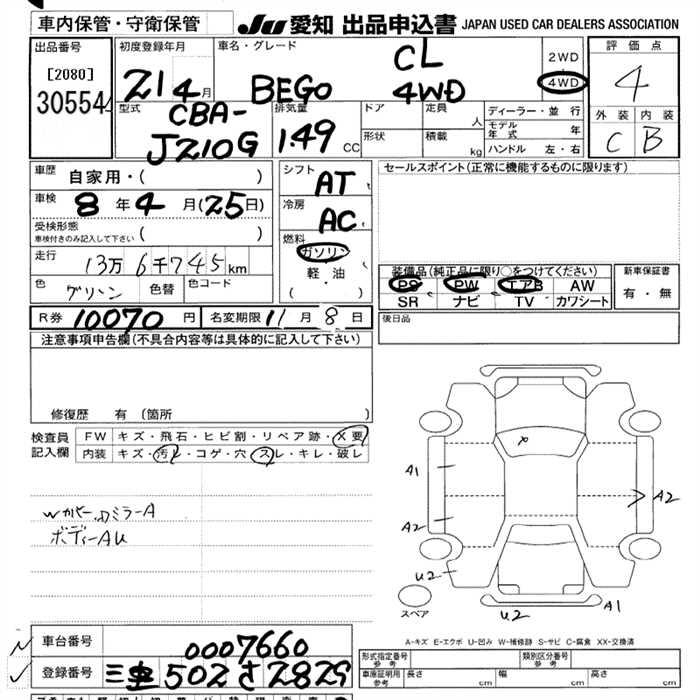 車内保管・守衛保管
JU 愛知 出品申込書 JAPAN USED CAR DEALERS ASSOCIATION
出品番号 初度登録年月 車名・グレード 2WD 評価点
[2080] 21 4 月 BEGO CL 4WD 4WD 4
30554
型式 排気量 ドア 定員 人 ディーラー・並行 外装 内装
CBA-J210G 1.49 CC 形状 積載 kg モデル年式 年 C B
ハンドル 左・右
車歴 自家用・( ) シフト AT セールスポイント(正常に機能するものに限ります)
車検 8 年 4 月(25日) 冷房 AC
受検形態 ( )
車検付きのみ記入して下さい
燃料 ガソリン
走行 13万 6千745 km 軽・油 装備品(純正品に限り○をつけてください) 新車保証書
( ・ ) PS PW エアB AW 有・無
色 グリーン 色替 色コード SR ナビ TV カワシート
R券 10070 円 名変期限 11 月 8 日 後日品
注意事項申告欄(不具合内容等は具体的に記入して下さい)
修復歴 有(箇所 )
検査員 FW キズ・飛石・ヒビ割・リペア跡・X要
記入欄 内装 キズ・汚レ・コゲ・穴・スレ・キレ・破レ
A1
A2
Wカバー.ドミラーA
A2
ボディーAU
U2
スペア
U2
A1
A-キズ E-エクボ U-凹み W-補修跡 S-サビ C-腐食 XX-交換済
車台番号 0007660
形式指定番号 参考 類別区分番号 参考
登録番号 502 さ 2829
車庫証明用 参考 長さ cm 幅 cm 高さ cm